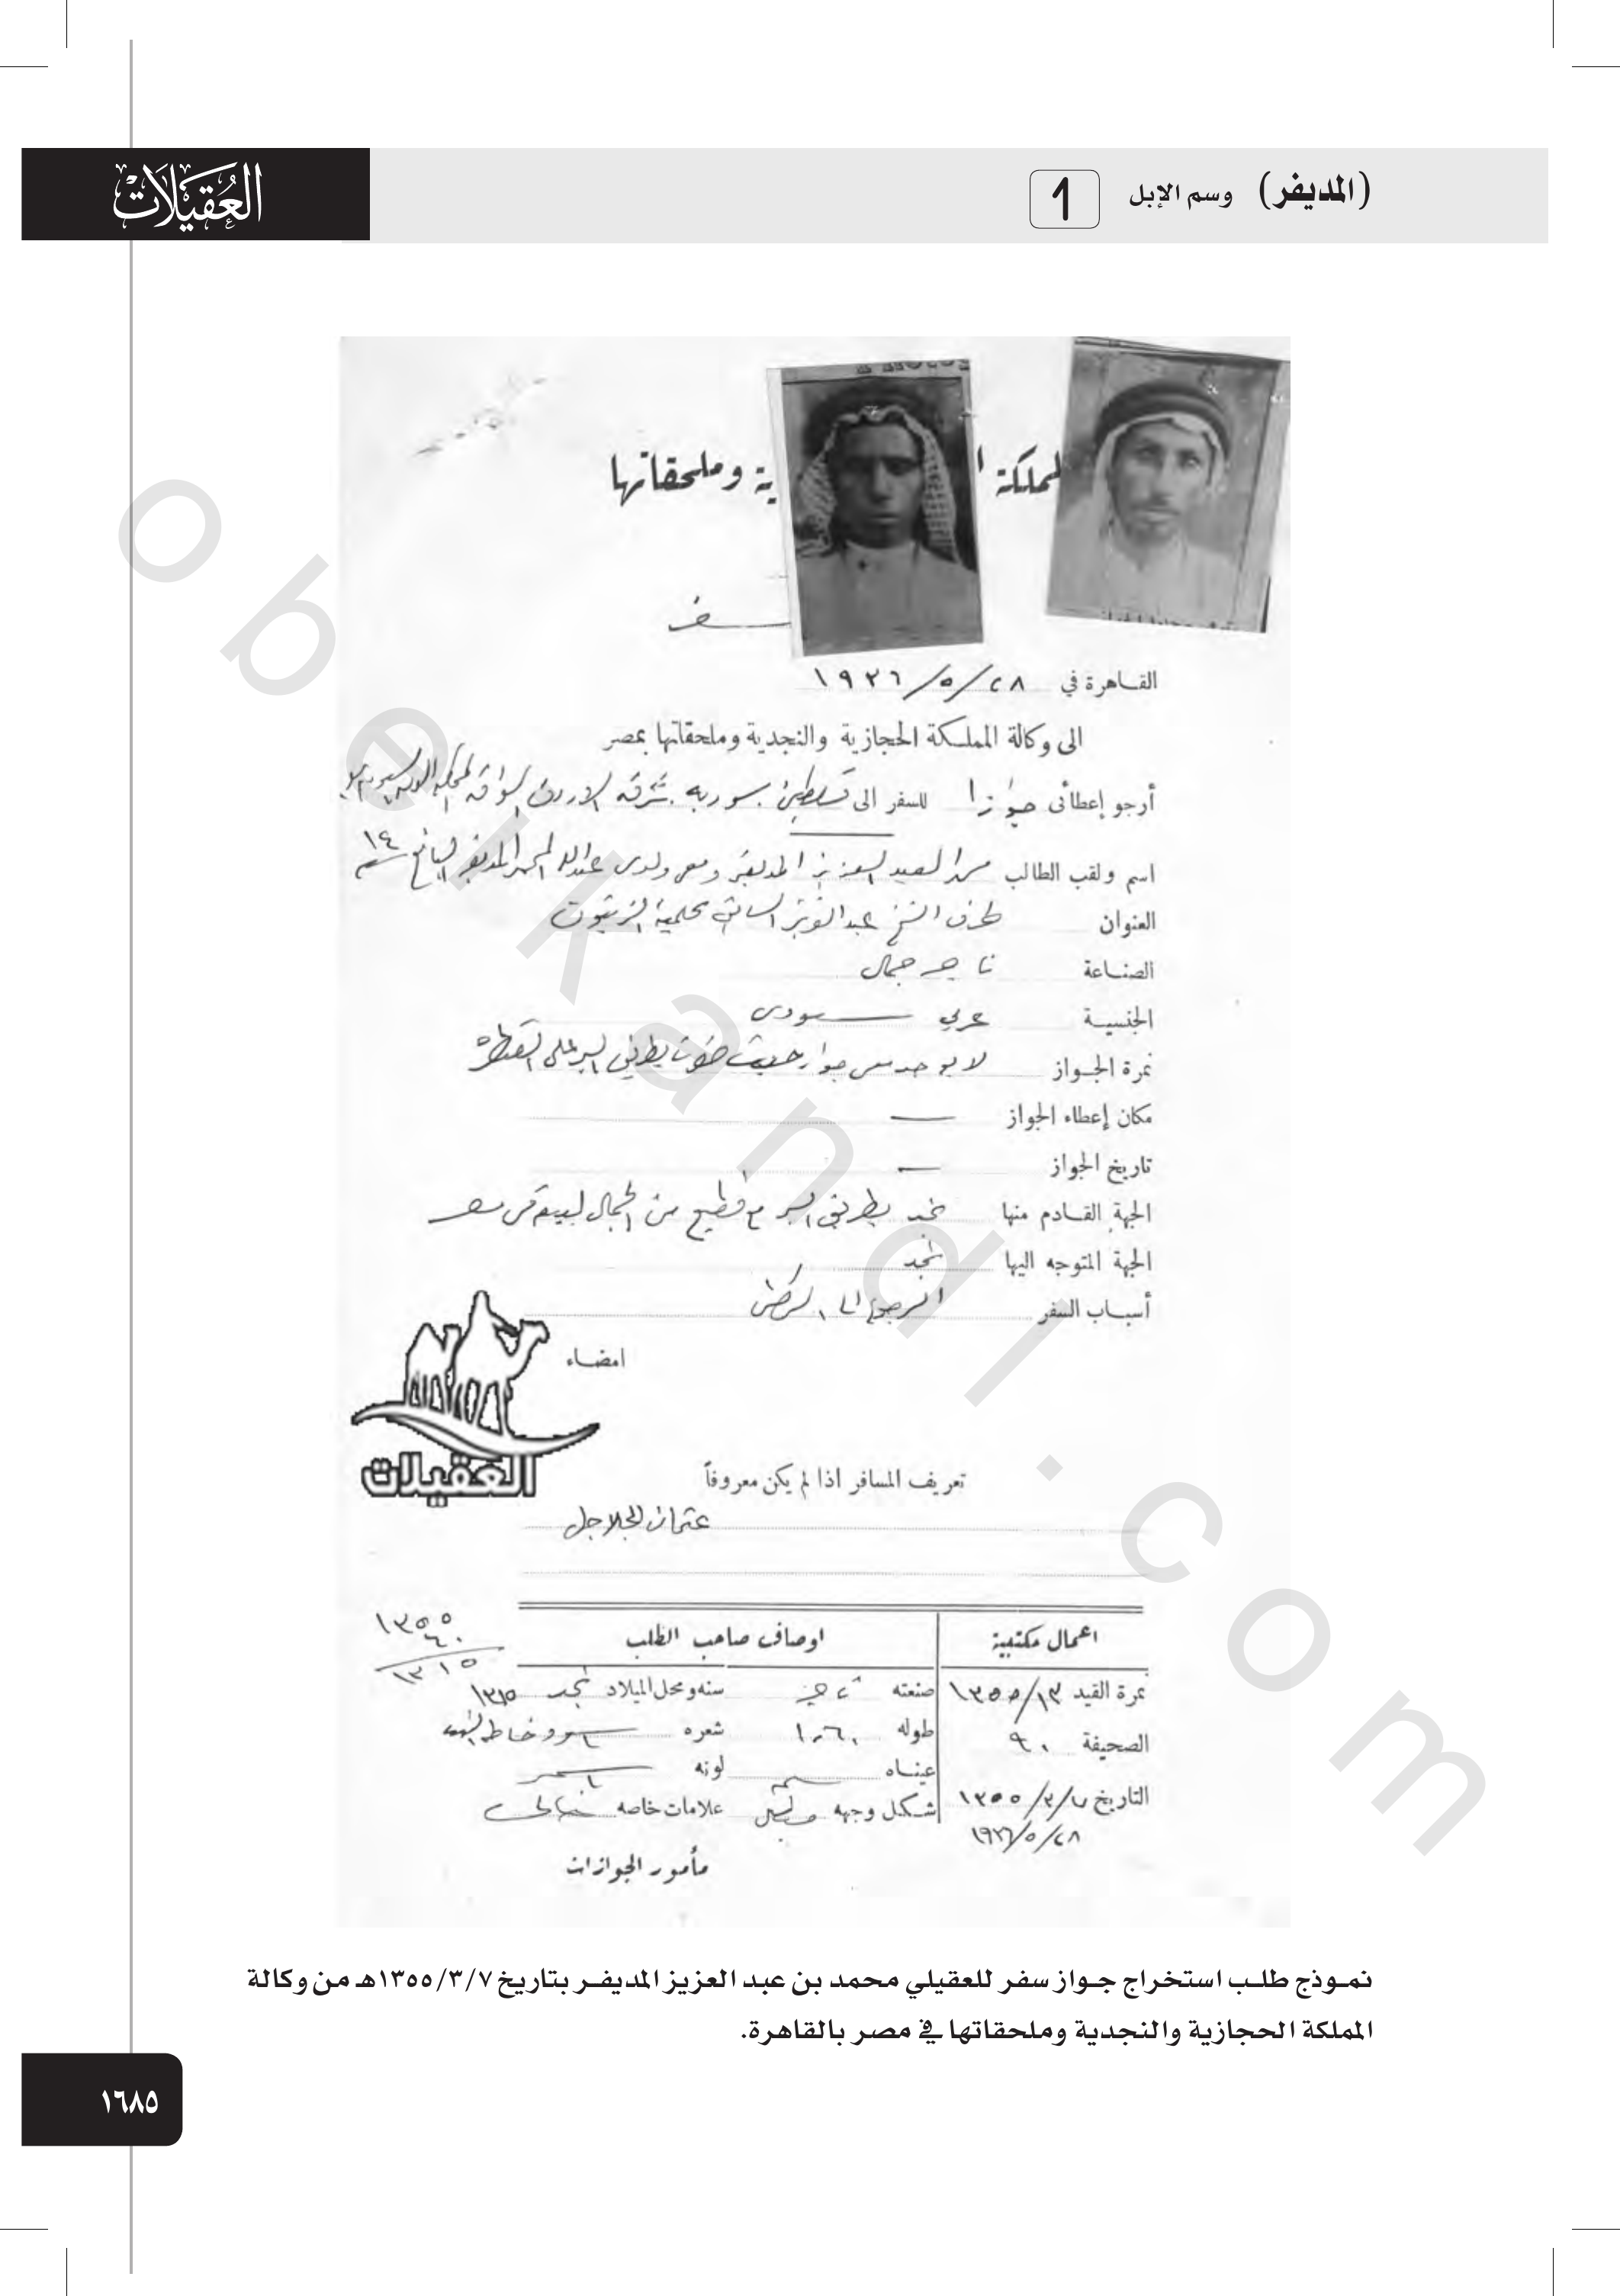 (المديفر) وسم الإبل
العُقيلات
لمملكة ا ية وملحقاتها
سفر
القاهرة في ٢٨/٥/١٩٣٦
الى وكالة المملكة الحجازية والنجدية وملحقاتها بمصر
أرجو إعطائى جوازا للسفر الى فلسطين سوريه شرق الاردن العراق المملكه العربيه السعوديه
اسم ولقب الطالب محمد العبد العزيز المديفر ومعى ولدى عبدالله المحمد المديفر البالغ ١٤ سنه
العنوان طرف الشيخ عبدالعزيز بحلمية الزيتون
الصناعة تاجر جمال
الجنسية عربي سعودى
نمرة الجواز لا يوجد معى جواز حيث بطريق البر على القنطره
مكان إعطاء الجواز —
تاريخ الجواز —
الجهة القادم منها نجد بطريق البر مع قطيع من الجمال لبيعه فى مصر
الجهة المتوجه اليها نجد
أسباب السفر الرجوع الى الوطن
امضاء
العقيلات
تعريف المسافر اذا لم يكن معروفاً
عثمان الجلاجل
١٣٥٥
٤٠
١٣١٥
اعمال مكتبية اوصاف صاحب الطلب
نمرة القيد ١٣٥٥/١٣ صنعته تاجر سنه ومحل الميلاد نجد ١٣١٥
الصحيفة ٩٠ طوله ١،٦٠ شعره
عيناه لونه اسمر
التاريخ ١٣٥٥/٣/٧ شكل وجهه علامات خاصه
١٩٣٦/٥/٢٨
مأمور الجوازات
نموذج طلب استخراج جواز سفر للعقيلي محمد بن عبد العزيز المديفر بتاريخ ١٣٥٥/٣/٧هـ من وكالة
المملكة الحجازية والنجدية وملحقاتها في مصر بالقاهرة.
١٦٨٥
obeikandl.com